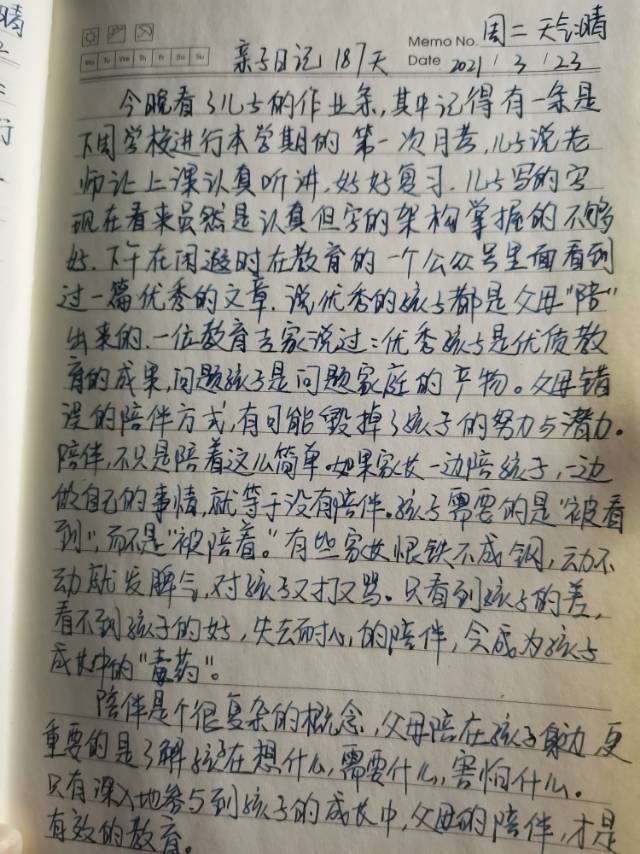 周二 天气:晴
亲子日记 187天
Memo No.
Mo Tu We Th Fr Sa Su
Date 2021 / 3 / 23
今晚看了儿子的作业条,其中记得有一条是
下周学校进行本学期的第一次月考,儿子说老
师让上课认真听讲,好好复习.儿子写的字
现在看来虽然是认真但字的架构掌握的不够
好.下午在闲遐时在教育的一个公众号里面看到
过一篇优秀的文章.说优秀的孩子都是父母"陪"
出来的.一位教育专家说过:优秀孩子是优质教
育的成果,问题孩子是问题家庭的产物。父母错
误的陪伴方式,有可能毁掉了孩子的努力与潜力。
陪伴,不只是陪着这么简单.如果家长一边陪孩子,一边
做自己的事情,就等于没有陪伴.孩子需要的是"被看
到",而不是"被陪着。"有些家长恨铁不成钢,动不
动就发脾气,对孩子又打又骂。只看到孩子的差,
看不到孩子的好,失去耐心,的陪伴,会成为孩子
成长中的"毒药"。
陪伴是个很复杂的概念,父母陪在孩子身边更
重要的是了解孩子在想什么,需要什么,害怕什么。
只有深入地参与到孩子的成长中,父母的陪伴,才是
有效的教育。